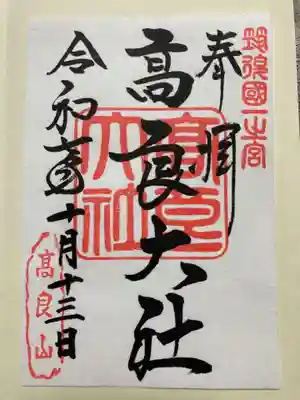 筑後國一之宮
奉拝
高良大社
高良大社
令和六年十月十三日
高良山